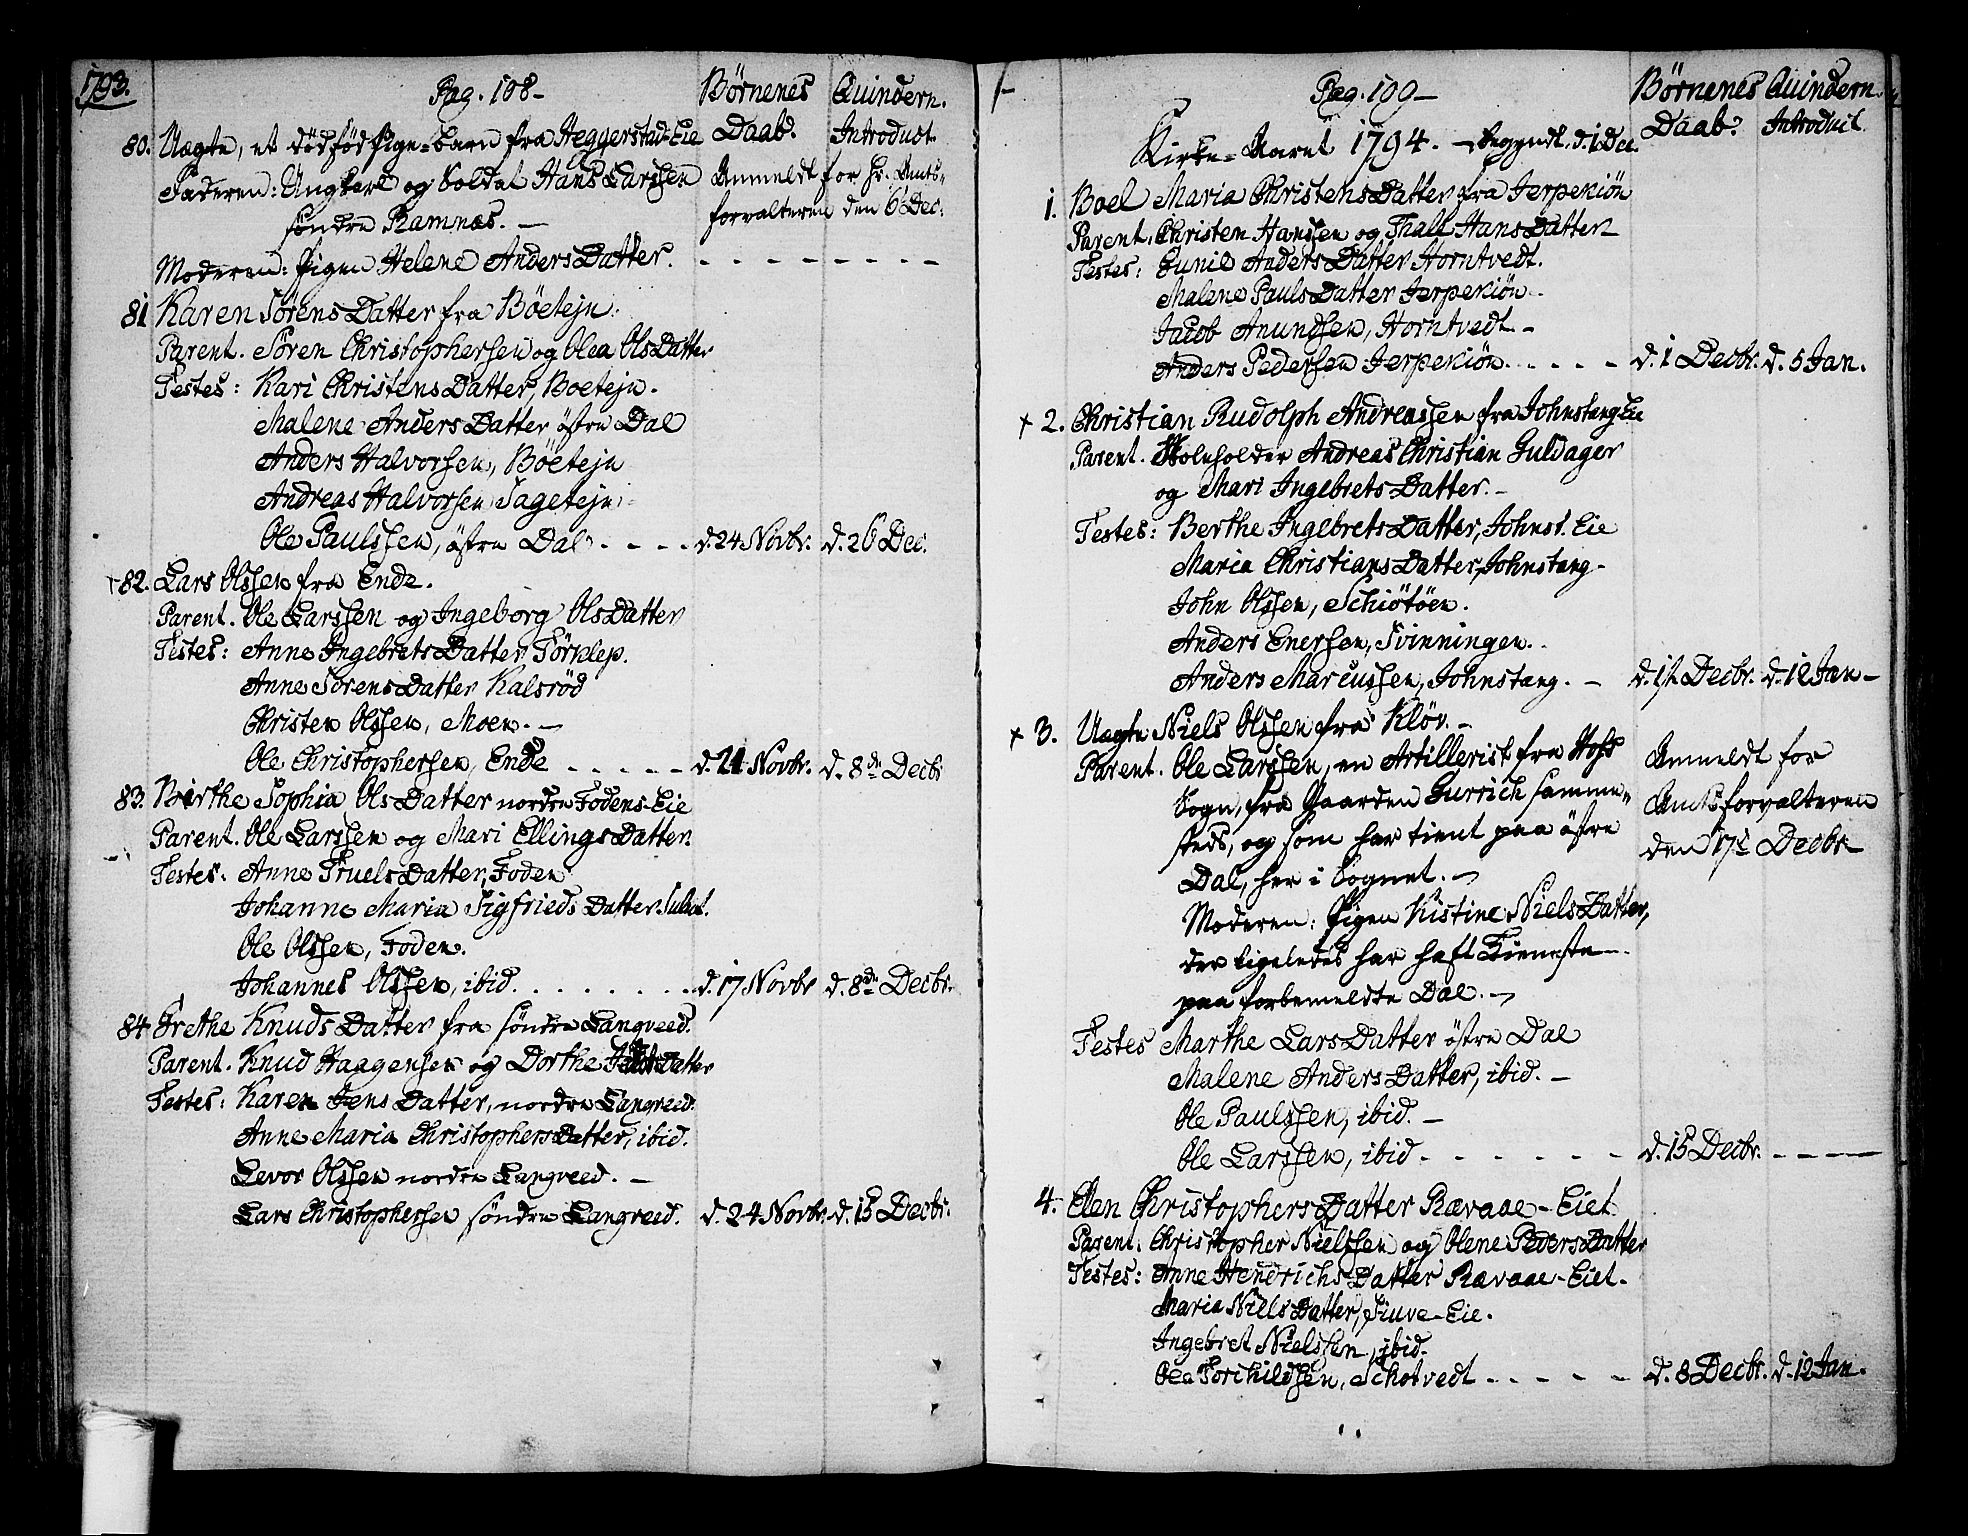 1793.
Pag. 108-
Børnenes Daab.
Quindern. Introduct.
80. Uægte, et dødfød Pige-barn fra Heggerstad-Eie
Faderen: Ungkarl og Soldat Hans Larssen
søndre Ramnæs. —
Anmeldt for Hr. Amts-
forvalteren den 6 Dec:
Moderen: Pigen Helene AndersDatter. - - - - - - - -
81 Karen SørensDatter fra Böetejn.
Parent. Søren Christophersen og Olea OlsDatter
Testes: Kari ChristensDatter, Boetejn.
Malene AndersDatter östre Dal
Anders Halvorsen, Böetejn
Andreas Halvorsen Sagetejn
Ole Paulssen, östre Dal. - - - - d. 24 Novbr. d. 26 Dec.
+82. Lars Olssen fra Ende.
Parent. Ole Larssen og Ingeborg OlsDatter
Testes: Anne IngebretsDatter Törklep.
Anne SörensDatter Kalsröd
Christen Olssen, Moen. —
Ole Christophersen, Ende - - - - - d. 21 Novbr. d. 8de Decbr
83. Birthe Sophia OlsDatter nordre Foden-Eie
Parent. Ole Larssen og Mari EllingsDatter.
Testes: Anne TruelsDatter, Foden
Johanne Maria SigfriedsDatter
Ole Olssen, Foden.
Johannes Olssen, ibid. - - - - - - - d. 17 Novbr d. 8de Decbr.
84 Grethe KnudsDatter fra søndre Langreed.
Parent. Knud Haagensen og Dorthe Datter
Testes: Karen JensDatter, nordre Langreed.
Anne Maria ChristophersDatter, ibid.
Levor Olssen nordre Langreed. —
Lars Christophersen søndre Langreed. d. 24 Novbr. d. 15 Decbr.
Pag. 109-
Børnenes Daab.
Quindern. Introduct.
Kirke-Aaret 1794. — begyndt. d. 1 Dec.
1. Boel Maria ChristensDatter fra Jerpekiön
Parent. Christen Hanssen og Thall HansDatter
Testes: Gunil AndersDatter Horntvedt.
Malene PaulsDatter Jerpekiön.
Jacob Anundsen, Horntvedt. -
Anders Pedersen Jerpekiön. - - - - d. 1 Decbr. d. 5 Jan.
+ 2. Christian Rudolph Andreassen fra Johnstang Eie
Parent. Skoleholder Andreas Christian Guldager
og Mari IngebretsDatter. -
Testes: Berthe IngebretsDatter, Johnst. Eie
Maria ChristiansDatter, Johnstang-
John Olssen, Schiötöen.
Anders Enersen, Svinningen.
Anders Marcussen, Johnstang. - d. 11 Decbr. d. 12 Jan-
+ 3. Uægte Niels Olssen fra Klöv. -
Parent. Ole Larssen, en Artillerist fra Hofs
Sogn, fra Gaarden Gurrich samme-
steds, og som har tient paa östre
Dal, her i Sognet. -
Anmeldt for
Amtsforvalteren
den 17de Decbr
Moderen: Pigen Kistine NielsDatter,
der ligeledes har haft Tieneste
paa forbemeldte Dal. -
Testes Marthe LarsDatter östre Dal
Malene AndersDatter, ibid. -
Ole Paulssen, ibid. -
Ole Larssen, ibid - - - - - - d. 15 Decbr. - - - -
4. Elen ChristophersDatter Rævaae-Eiet
Parent. Christopher Nielssen og Olene PedersDatter
Testes: Anne HendrichsDatter Rævaae-Eiet-
Maria NielsDatter, Fiuve-Eie.
Ingebret Nielssen, ibid-
Ole Torchildsen, Schotvedt - - - - - d. 8 Decbr. d. 12 Jan.